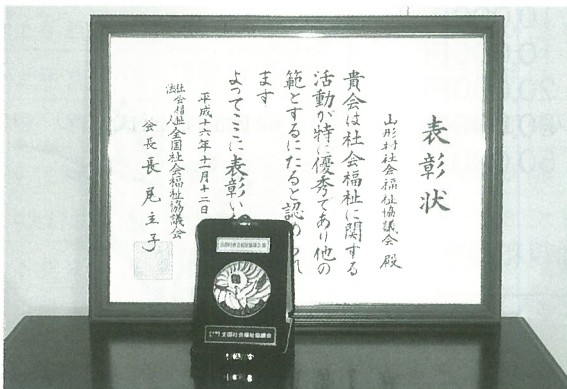 表彰状
山形村社会福祉協議会 殿
貴会は社会福祉に関する
活動が特に優秀であり他の
範とするにたると認められ
ます
よってここに表彰い
平成十六年十一月十二日
社会福祉法人 全国社会福祉協議会
会長 長尾立子
全国社会福祉協議会